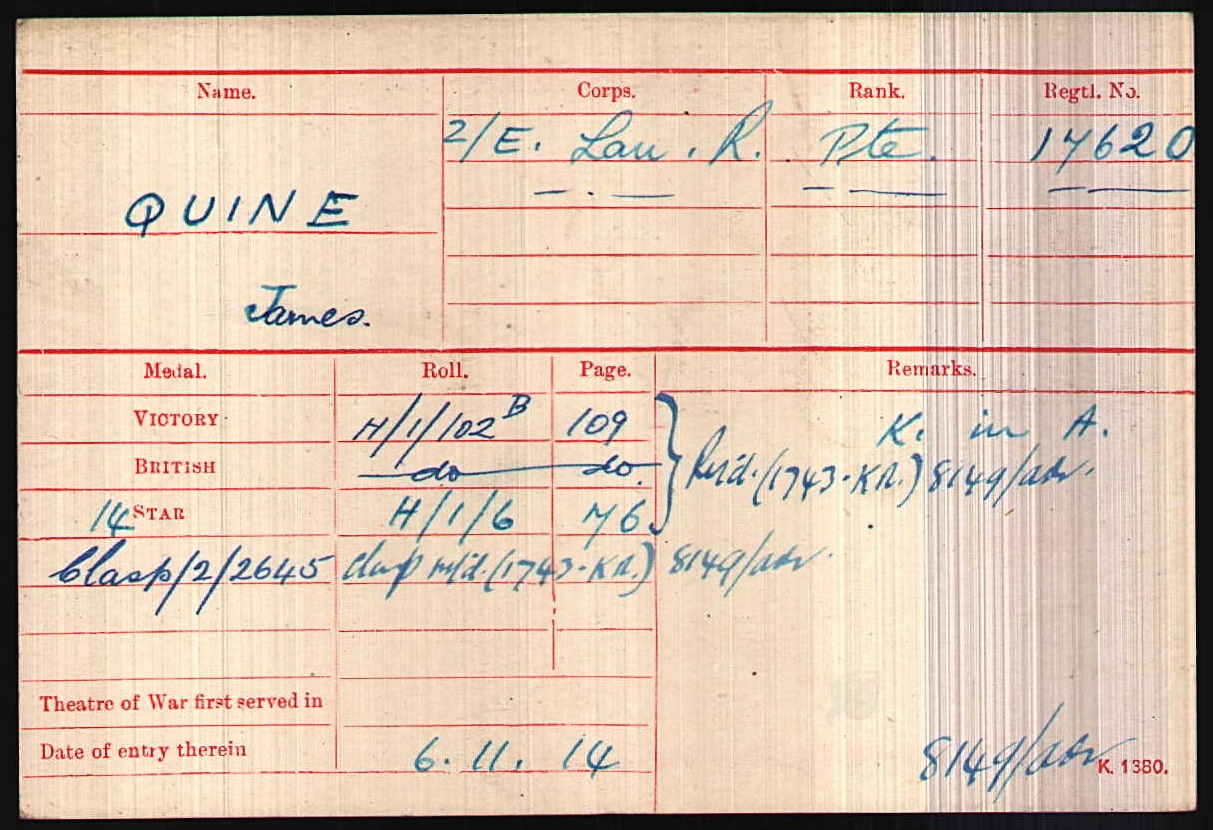 Name. Corps. Rank. Regtl. No.
2/E. Lan. R. Pte. 17620
QUINE
James.
Medal. Roll. Page. Remarks.
VICTORY H/1/102 B 109 K. in A.
BRITISH do do. (1743-KR.) 8149/adv.
14 STAR H/1/6 76
Clasp/2/2645 Clasp (1743-KR.) 8149/adv.
Theatre of War first served in
Date of entry therein 6.11.14 8149/adv
K. 1380.